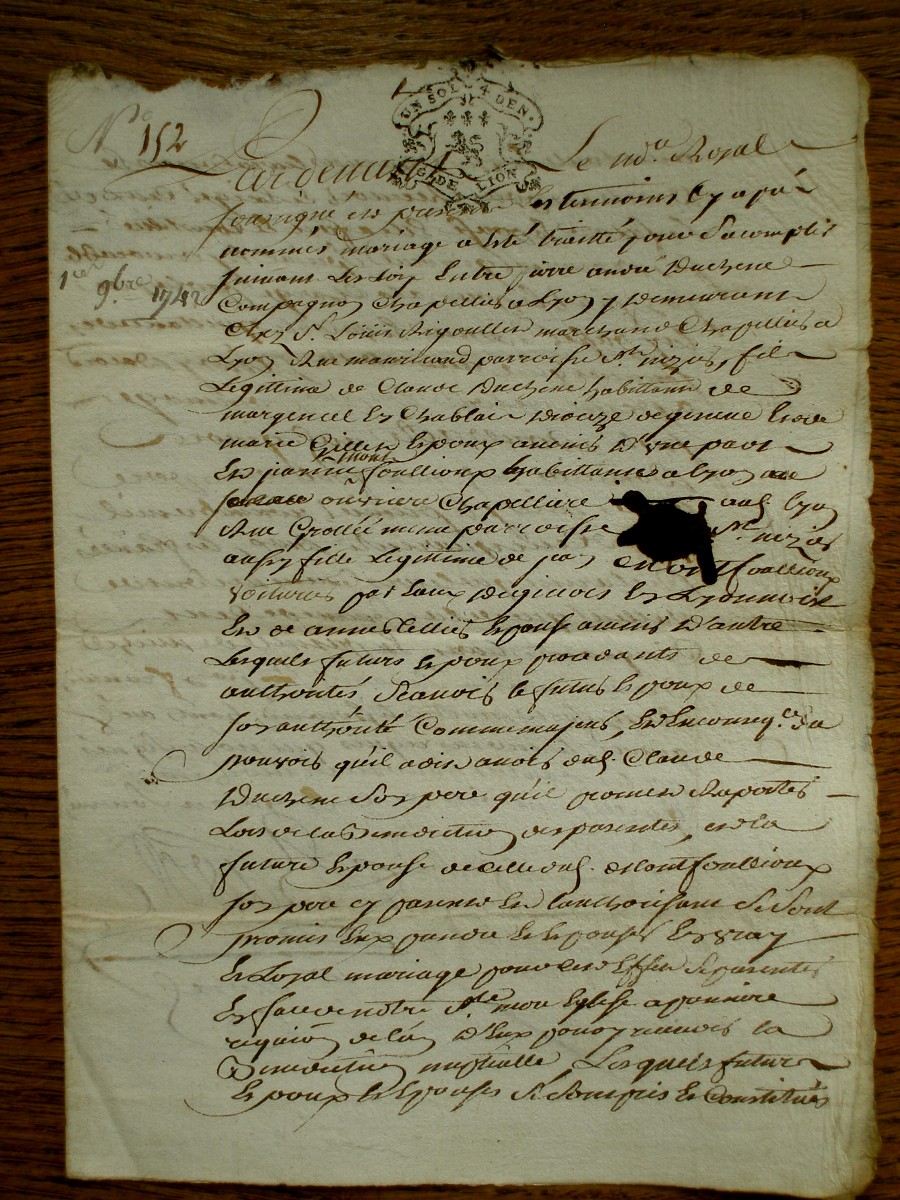 N.o 152
UN SOL 4 DEN.
G. DE LION
Pardevant Le no.re Royal
soussigné en presence des temoins cy apres
nommés mariage a esté traitté pour s'acomplir
suivant les loix Entre pierre andré Duchene
1er 9bre 1742
Compagnon Chapellier a Lyon y Demeurant
Chez Sr. Louis Rigoullet marchand Chapellier a
Lyon Rue parroisse St. nizier, fils
Legittime de Claude Duchene habittant de
margencel En Chablais Dioceze de geneve Et de
marie Epoux avenir D'vne part
Et mont foullioux habittante a Lyon
ouvriere Chapelliere aud. Lyon
Rue Grollée mesme parroisse St. nizier
aussy fille Legittime de Montfoullioux
voiturier par Eaux De givors En Lyonnois
Et de anne tellier Epouse avenir D'autre
Lesquels futurs Epoux procedants de
authorités sçavoir le futur Epoux de
son authorité Comme majeur, Et Encore
pouvoir qu'il a dit avoir dud. Claude
Duchene Son pere qu'il promet Raporter
Lors de la Benediction des parentes, et la
future Epouse de celle dud. Montfoullioux
son pere cy present Et l'authorisant Se sont
promis Eux prendre Et Epouser En vray
Et Loyal mariage pour cet Effet Se presenter
En face de notre Ste. mere Eglise a premiere
requis.on de l'un D'Eux pour y recevoir la
Benediction nuptialle, Lesquels futur
Epoux Et Epouse Se Sont pris Et Constitués